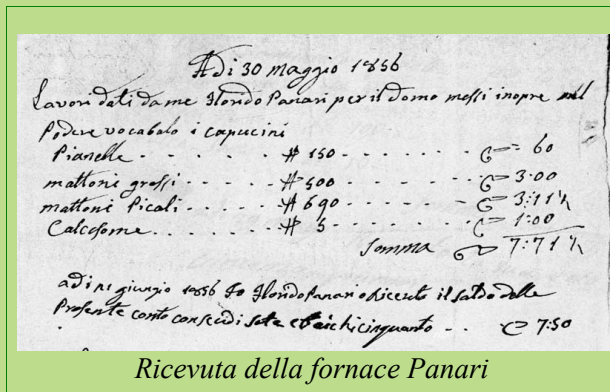 Adi 30 maggio 1856
Lavori dati da me Ilondo Panari per il domo messi inopre nel
Podere vocabolo i capucini
Pianelle - - - # 150 - - - - - 60
mattoni grossi - - - - # 500 - - - - 3:00
mattoni Picali - - - - # 690 - - - - 3:11½
Calcesome - - - - # 5 - - - - 1:00
Somma 7:71½
adi giugnio 1856 Io Ilondo Panari o Riceuto il saldo delle
Presente conto con scudi sete e baichi cinquanto - - 7:50
Ricevuta della fornace Panari